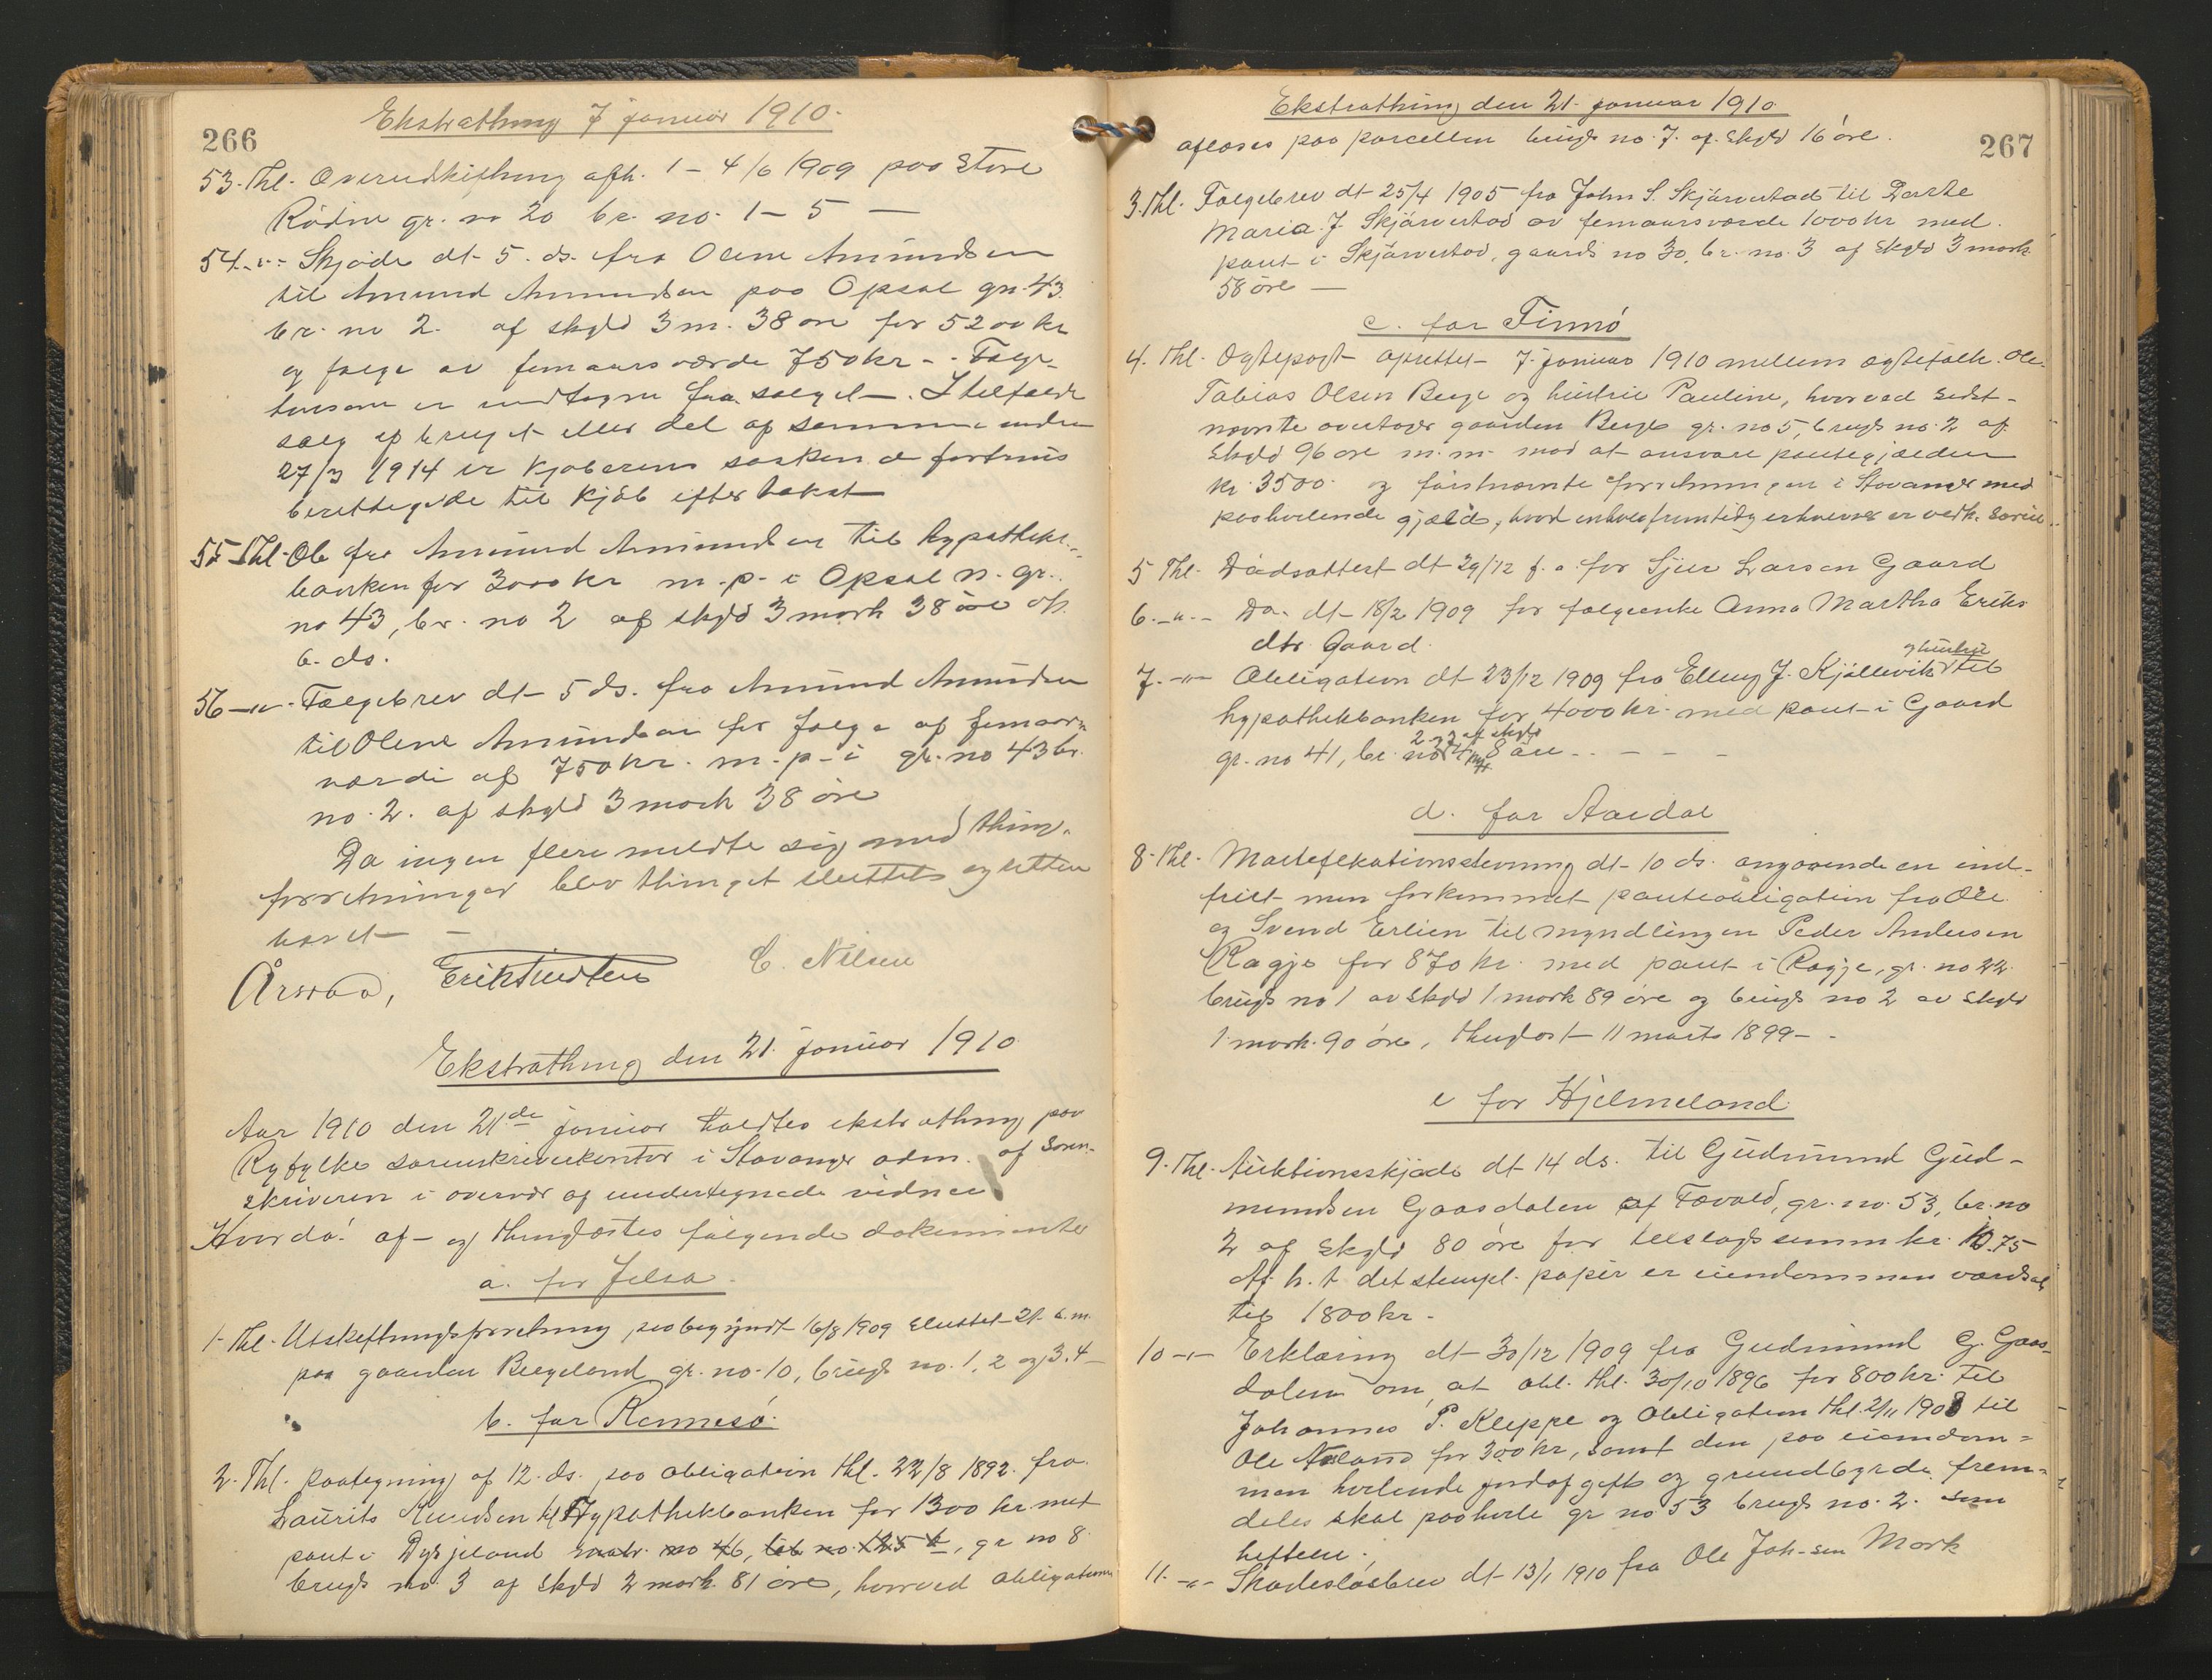 266
Ekstrathing 7 januar 1910.
53. Thl. Overudskiftning afh. 1 - 4/6 1909 paa Store
gr. no 20 br. no. 1 - 5 —
54. -"- Skjøde dt. 5. ds. fra Olene Amundsen
til Amund Amundsen paa Opsal gr. 43.
br. no 2. af skyld 3 m. 38 øre for 5200 kr
og folge av femaarsværde 750 kr. - Folge-
er undtagne fra salget. I tilfælde
salg af bruget eller del af samme inden
27/3 1914 er kjøberens søsken
berettigede til kjøb efter takst
55 Thl. Ob fra Amund Amundsen til hypotheks-
banken for 3000 kr m. p. i Opsal n. gr.
no 43, br. no 2 af skyld 3 mark 38 øre dt.
6. ds.
56 -"- Folgebrev dt 5 ds. fra Amund Amundsen
til Olene Amundsen for folge af femaars
værdi af 750 kr. m. p. i gr. no 43 br.
no. 2. af skyld 3 mark 38 øre
Da ingen flere meldte sig med thing-
forretninger blev thinget sluttet og retten
hævet —
Årstad, Erik Knudsen C. Nilsen
Ekstrathing den 21. januar 1910
Aar 1910 den 21de januar holdtes ekstrathing paa
Ryfylke sorenskriverkontor i Stavanger adm. af soren-
skriveren i overvær af undertegnede vidner
Hvorda: af- og thinglæstes følgende dokumenter
a. for Jelsa.
1. Thl. Utskiftningsforretning, paabegyndt 16/8 1909 sluttet 21. s. m.
paa gaarden Bergeland gr. no. 10, brugs no. 1, 2 og 3. 4
b. for Rennesø.
2. Thl. paategning af 12. ds. paa obligation thl. 22/8 1892. fra
Laurits Knudsen til Hypothekbanken for 1300 kr med
pant i Dysjeland matr. no 46, løb no. 125 b, gr no 8
brugs no. 3 af skyld 2 mark. 81 øre, hvorved obligationen
267
Ekstrathing den 21. januar 1910
afløses paa parcellen brugs no. 7. af skyld 16 øre.
3. Thl. Folgebrev dt 25/4 1905 fra John S. Skjørvestad til Dorte
Maria J. Skjørvestad av femaarsværde 1000 kr med
pant i Skjørvestad, gaards no 30, br. no. 3 af skyld 3 mark
58 øre —
c. for Finnø
4. Thl. Ægtepagt oprettet 7. januar 1910 mellem ægtefolk Ole
Tobias Olsen Berge og hustru Pauline, hvorved sidst-
nævnte overtager gaarden Berge gr. no 5, brugs no. 2 af
skyld 96 øre m. m. mod at ansvare pantegjælden
kr. 3500. og førstnævnte forretningen i Stavanger med
paahvilende gjæld, hvad enhver fremtidig erhverver er vedk. særeie.
5 Thl. Dødsattest dt 29/12 f. a. for Sjur Larsen Gaard
6. -"- Do. dt 18/2 1909 for folgeenke Anna Martha Eriks
dtr Gaard.
7. -"- Obligation dt 23/12 1909 fra Elling J. Kjøllevik og hustru til
hypothekbanken for 4000 kr. med pant i Gaard
gr. no 41, br. no 2 og 3 af skyld 8 øre - - -
d. for Aardal
8. Thl. Mortifikationsstevning dt 10 ds. angaaende en ind-
friet men forkommet panteobligation fra Ole
og Svend Erlien til myndlingen Peder Andersen
Ragje for 870 kr. med pant i Ragje, gr. no 22
brugs no 1 av skyld 1 mark 89 øre og brugs no 2 av skyld
1 mark 90 øre, thinglæst 11 marts 1899. -
e for Hjelmeland
9. Thl. Auktionsskjøde dt 14 ds. til Gudmund Gud-
mundsen Gaasdalen af gr. no. 53, br. no
2 af skyld 80 øre for tilslagssum kr. 10.75
Af h. t. det stempl. papir er eiendommen værdsat
til 1800 kr.
10 -"- Erklæring dt 30/12 1909 fra Gudmund G. Gaas-
dalen om, at obl. thl. 30/10 1896 for 800 kr. til
Johannes P. Kleppe og obligation thl. 2/11 1908 til
Ole for 300 kr, samt den paa eiendom-
men hvilende jordafgift og grundbyrde frem-
deles skal paahvile gr no 53 brugs no. 2. som
heftelse.
11. -"- Skadesløsbrev dt 13/1 1910 fra Ole Joh-sen Mork